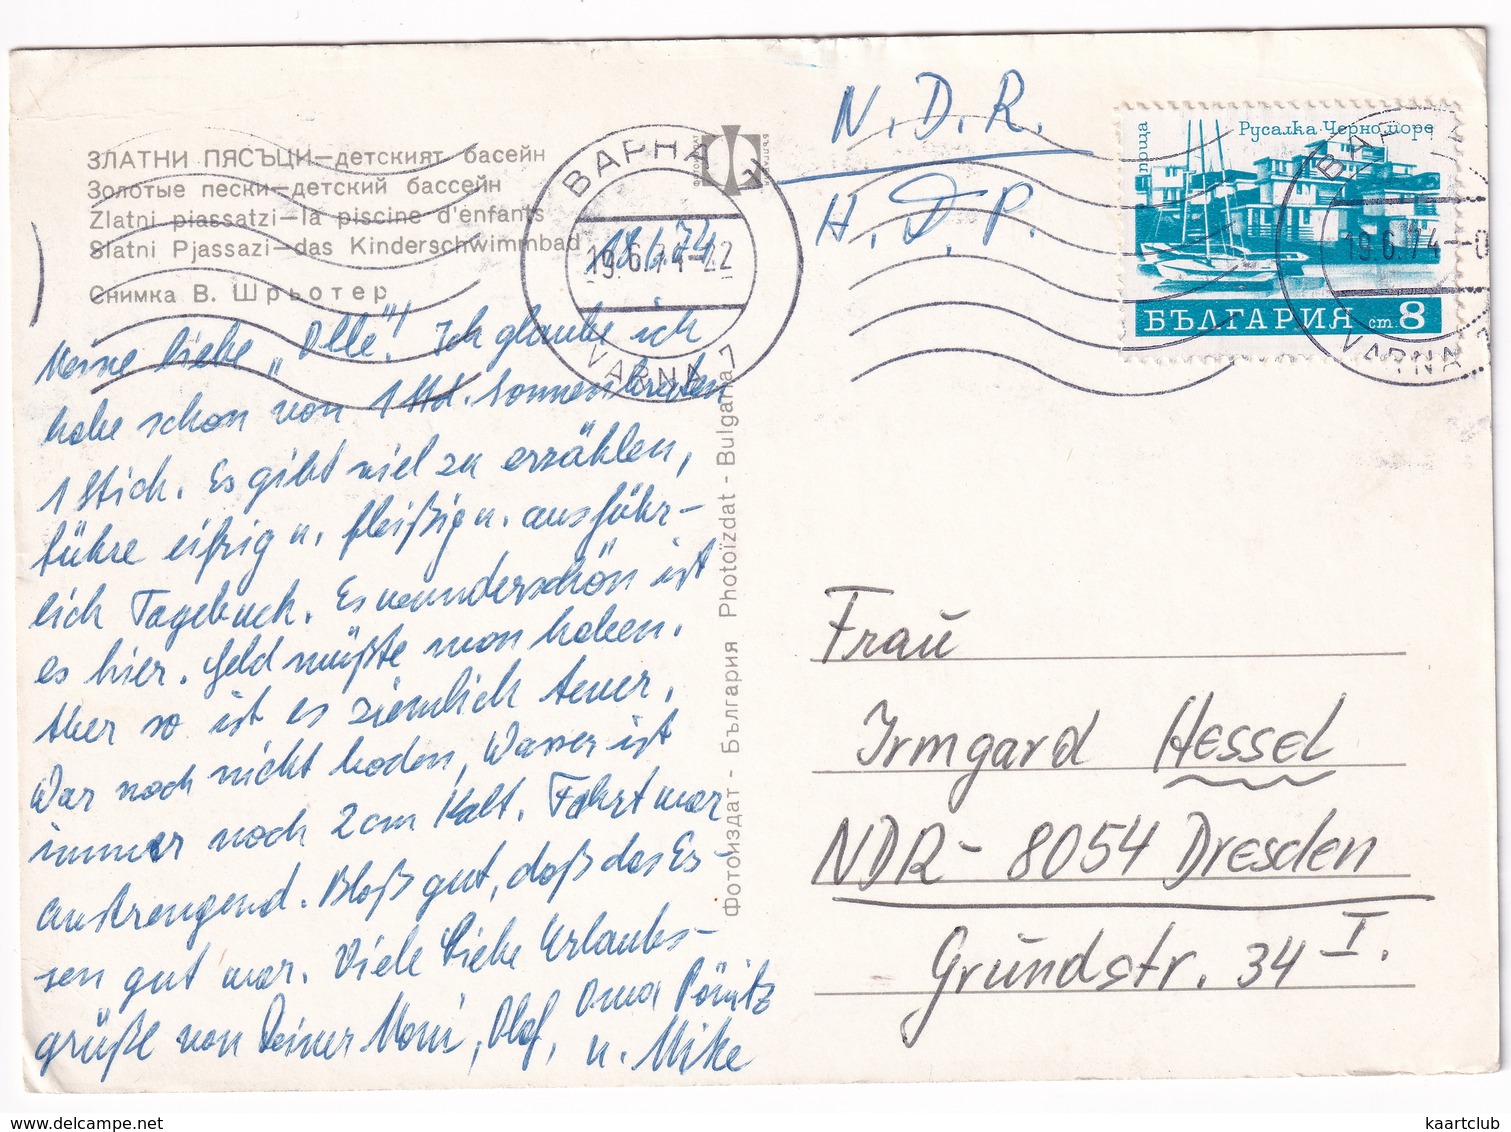 ЗЛАТНИ ПЯСЪЦИ—детският басейн
Золотые пески—детский бассейн
Zlatni piassatzi—la piscine d'enfants
Slatni Pjassazi—das Kinderschwimmbad
Снимка В. Шрьотер
18.6.74
Meine liebe „Olle"! Ich glaube ich
habe schon von 1 Std. Sonnenbraten
1 Stich. Es gibt viel zu erzählen,
führe eifrig u. fleißig u. ausführ-
lich Tagebuch. Es wunderschön ist
es hier. Geld müßte man haben.
Aber so ist es ziemlich teuer.
War noch nicht baden, Wasser ist
immer noch 2 cm kalt. Fahrt war
anstrengend. Bloß gut, daß das Es-
sen gut war. Viele liebe Urlaubs-
grüße von Deiner Moni, Olaf, Oma Pönitz
u. Mike
фотоиздат - България Photoïzdat - Bulgaria
ВАРНА
19.6.74-22
VARNA 7
N.D.R.
Н.Д.Р.
поща
Русалка Черно море
БЪЛГАРИЯ ст 8
19.6.74-0
VARNA
Frau
Irmgard Hessel
NDR - 8054 Dresden
Grundstr. 34 I.
kaartclub